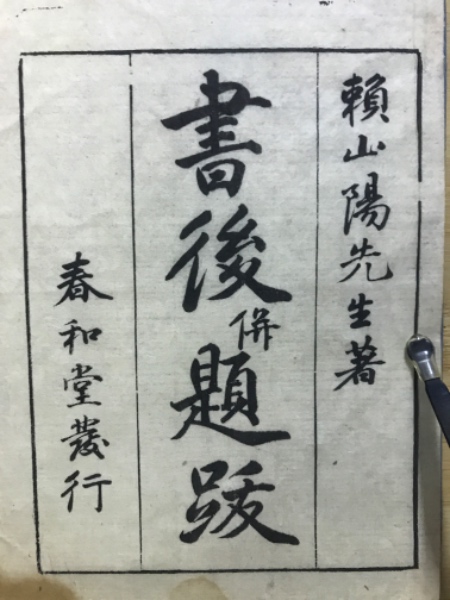 賴山陽先生著
書後併題跋
春和堂發行